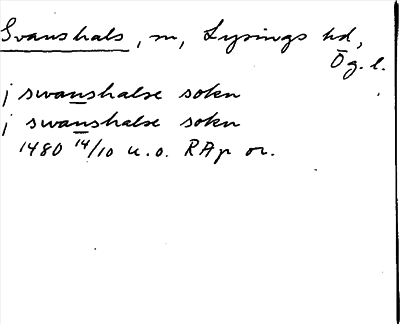 Svanshals, sn, Lysings hd,
Ög. l.
j swanshalse sokn
j swanshalse sokn
1480 14/10 u.o. RAp or.